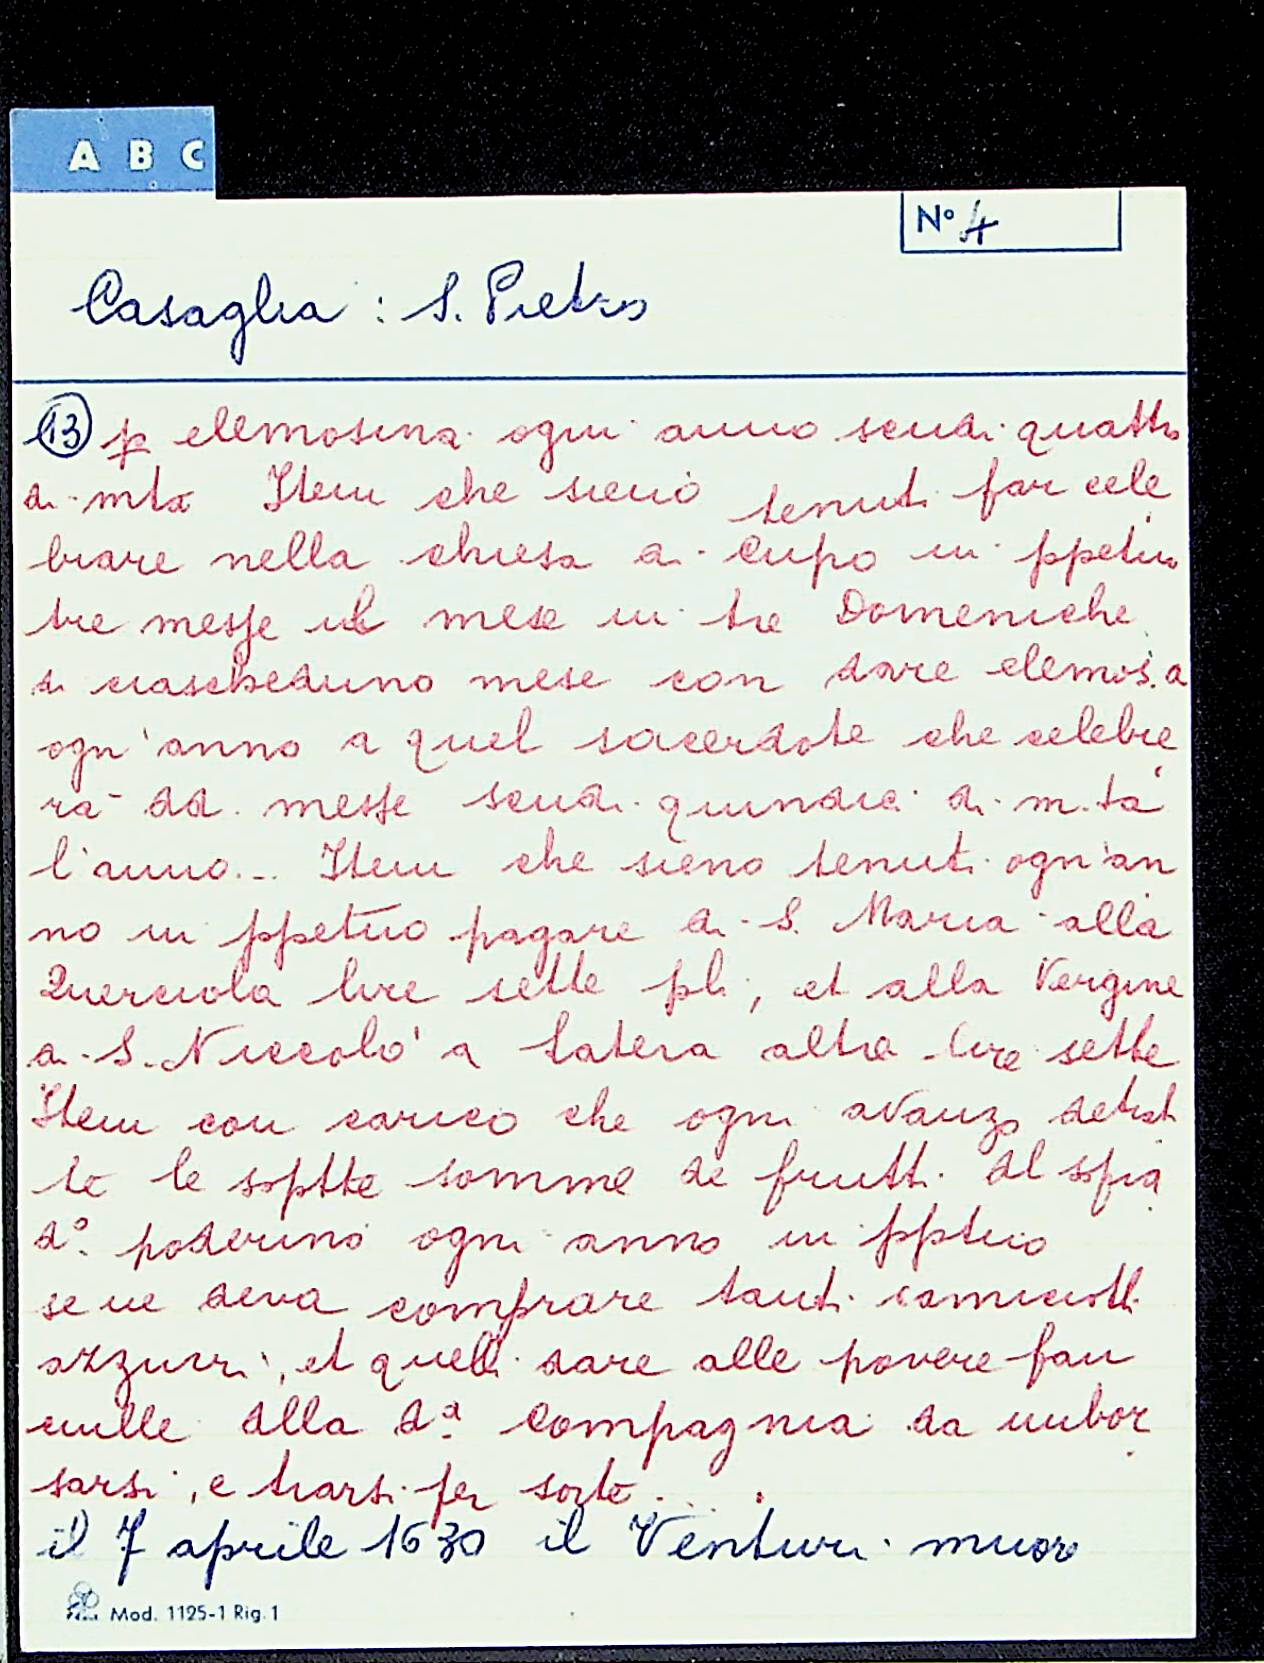 A B C
Nº 4
Casaglia : S. Pietro
(13) p elemosina ogni anno scudi quattro
di mta Item che sieno tenuti far cele
brare nella chiesa di Cupo in ppetuo
tre messe il mese in tre Domeniche
di ciascheduno mese con dare elemos.a
ogn'anno a quel sacerdote che celebre
rà dd. messe scudi quindici di m.ta
l'anno... Item che sieno tenuti ogn'an
no in ppetuo pagare a S. Maria alla
Querciola lire sette pli, et alla Vergine
di S. Niccolò a Latera altre lire sette
Item con carico che ogni avanzo detrat
te le soptte somme de frutti del sopra
dº poderino ogni anno in pptuo
se ne deva comprare tanti camiciotti
azzurri, et quelli dare alle povere fan
ciulle della dª Compagnia da imbor
sarsi, e trarsi per sorte....
il 7 aprile 1630 il Venturi muore
Mod. 1125-1 Rig. 1